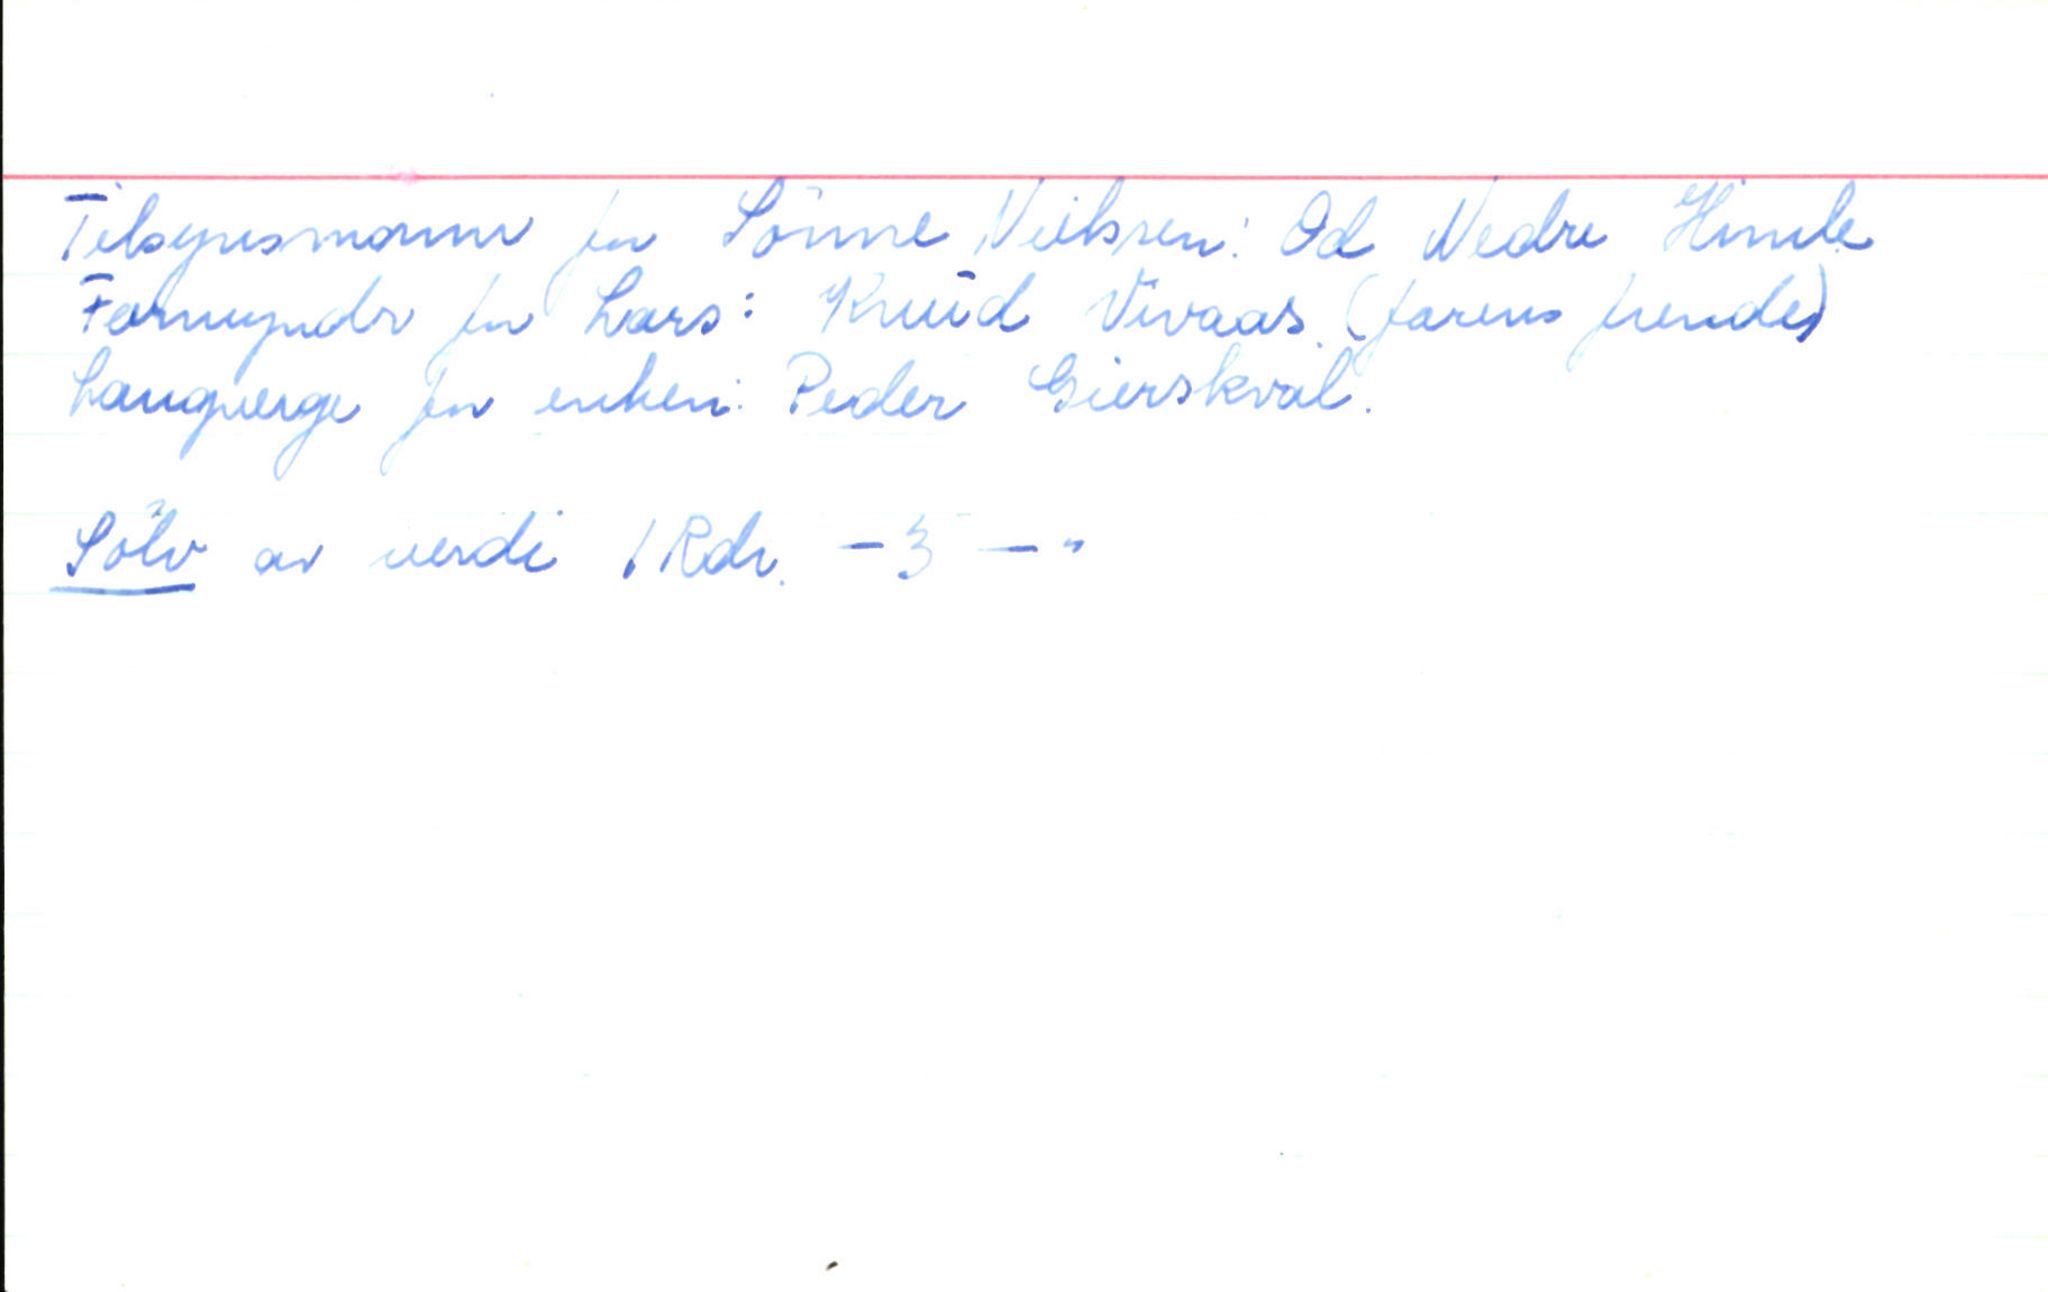 Tilsynsmann for Sönne Nielsen: Od Nedre Himle
Formyndr for Lars: Knud Vivaas (farens frende)
Laugverge for enken: Peder Gierskval.
Sölv av verdi 1 Rdr. - 3 - "